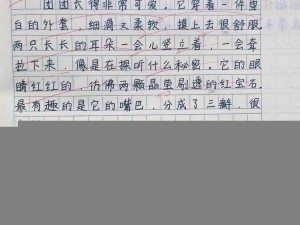 团团长得非常可爱，它穿着一件雪
白的外套，细滑又柔软，摸上去很舒服
两只长长的耳朵一会心竖立着，一会牵
拉下来，像是在探听什么秘密。它的眼
睛红红的，仿佛两颗晶莹剔透的红宝石
最有趣的是它的嘴巴，分成了三瓣，很